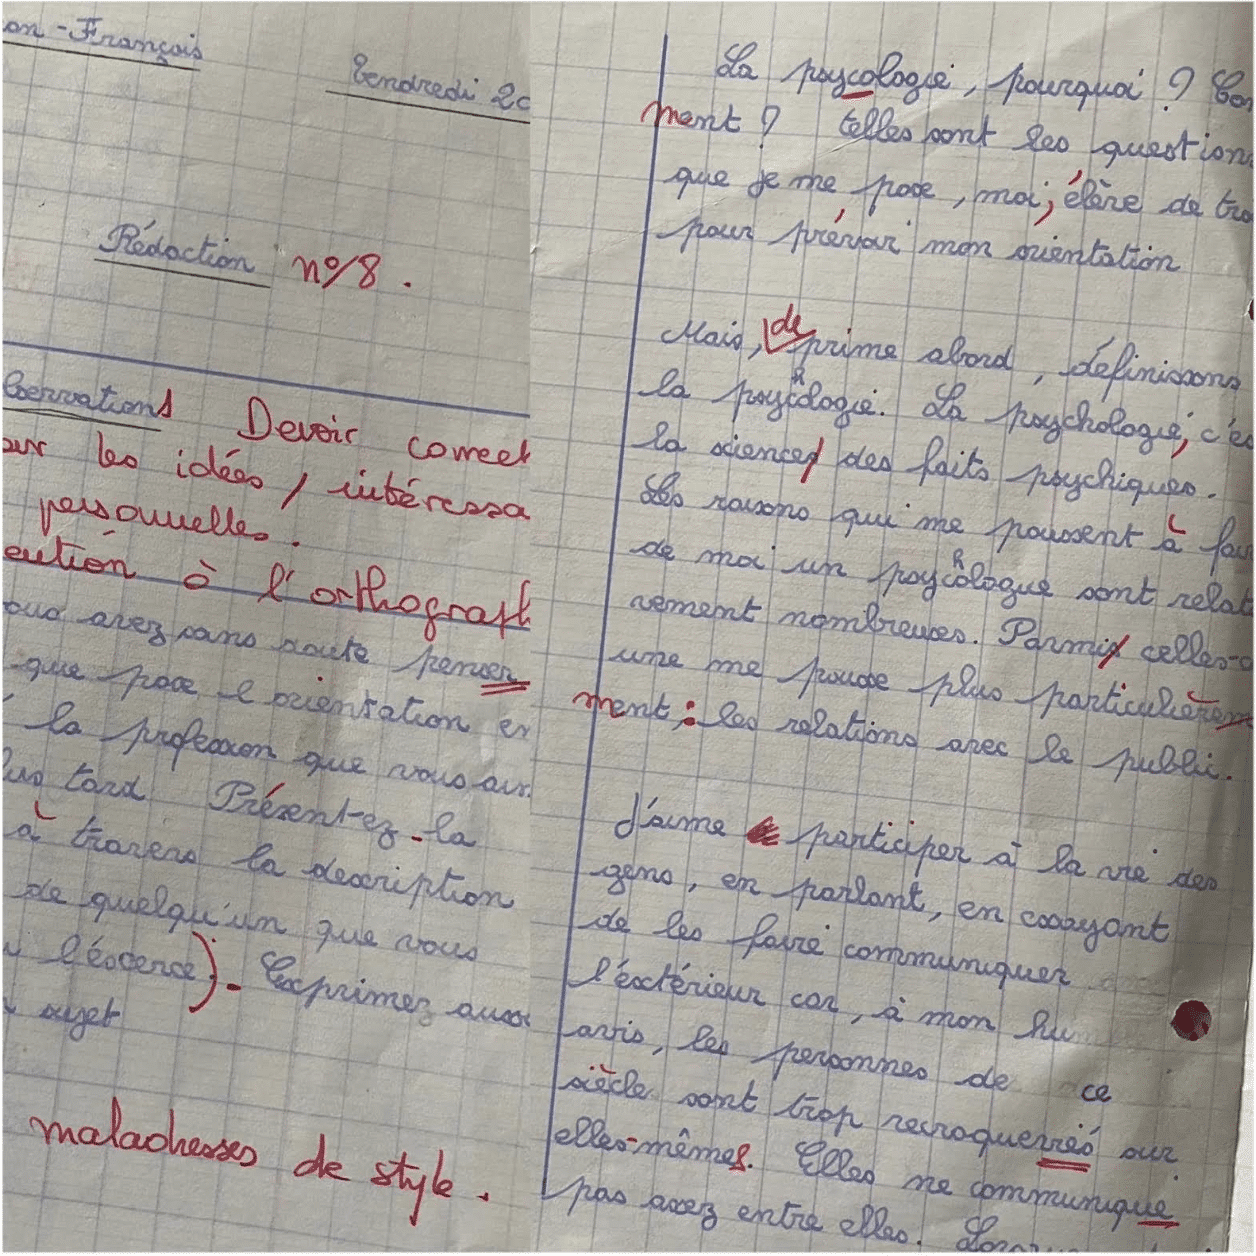 on - Français
Vendredi 20
Rédaction n°8.
bservations Devoir correct
sur les idées, intéressa
personnelles.
tention à l'orthograph
ous avez sans doute penser
que pose l'orientation en
la profession que vous aur
lus tard Présent-ez-la
à travers la description
de quelqu'un que vous
l'éxerce). Exprimez auss
sujet
maladresses de style.
La psycologie, pourquoi ? Com
ment ? telles sont les question
que je me pose, moi, élève de tro
pour prévoir mon orientation
Mais, de prime abord, définissons
la psychologie. La psychologie, c'es
la science des faits psychiques.
Les raisons qui me poussent à fai
de moi un psychologue sont relat
vement nombreuses. Parmi celles-c
une me pousse plus particulièrem
ment : les relations avec le public.
J'aime participer à la vie des
gens, en parlant, en essayant
de les faire communiquer
l'extérieur car, à mon hum
avis, les personnes de ce
siècle sont trop recroquevriés sur
elles-mêmes. Elles ne communique
pas assez entre elles.